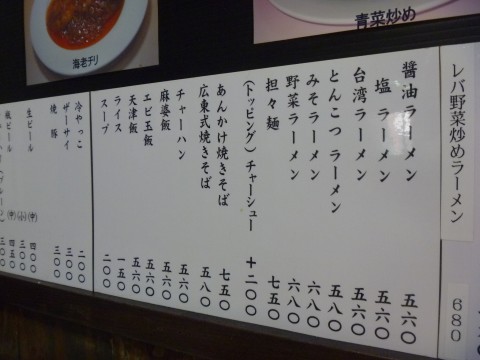 海老チリ
青菜炒め
レバ野菜炒めラーメン 680
醤油ラーメン 五六〇
塩ラーメン 五六〇
台湾ラーメン 五六〇
とんこつラーメン 五八〇
みそラーメン 六八〇
野菜ラーメン 六八〇
担々麺 七五〇
(トッピング)チャーシュー +二〇〇
あんかけ焼きそば 七五〇
広東式焼きそば 五八〇
チャーハン 五六〇
麻婆飯 五六〇
エビ玉飯 五六〇
天津飯 五六〇
ライス 一五〇
スープ 二〇〇
冷やっこ 二〇〇
ザーサイ 三〇〇
焼豚 三〇〇
生ビール (中) 四〇〇
(小) 三〇〇
瓶ビール (中) 四五〇
三〇〇